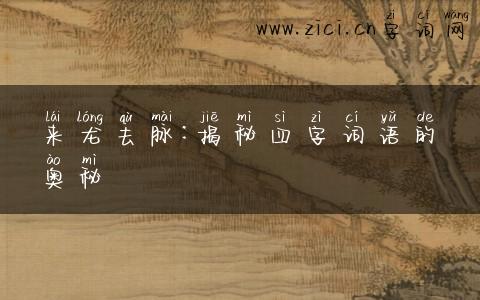 zì cí wǎng
www.zici.cn字词网
lái lóng qù mài jiē mì sì zì cí yǔ de
来龙去脉：揭秘四字词语的
ào mì
奥秘